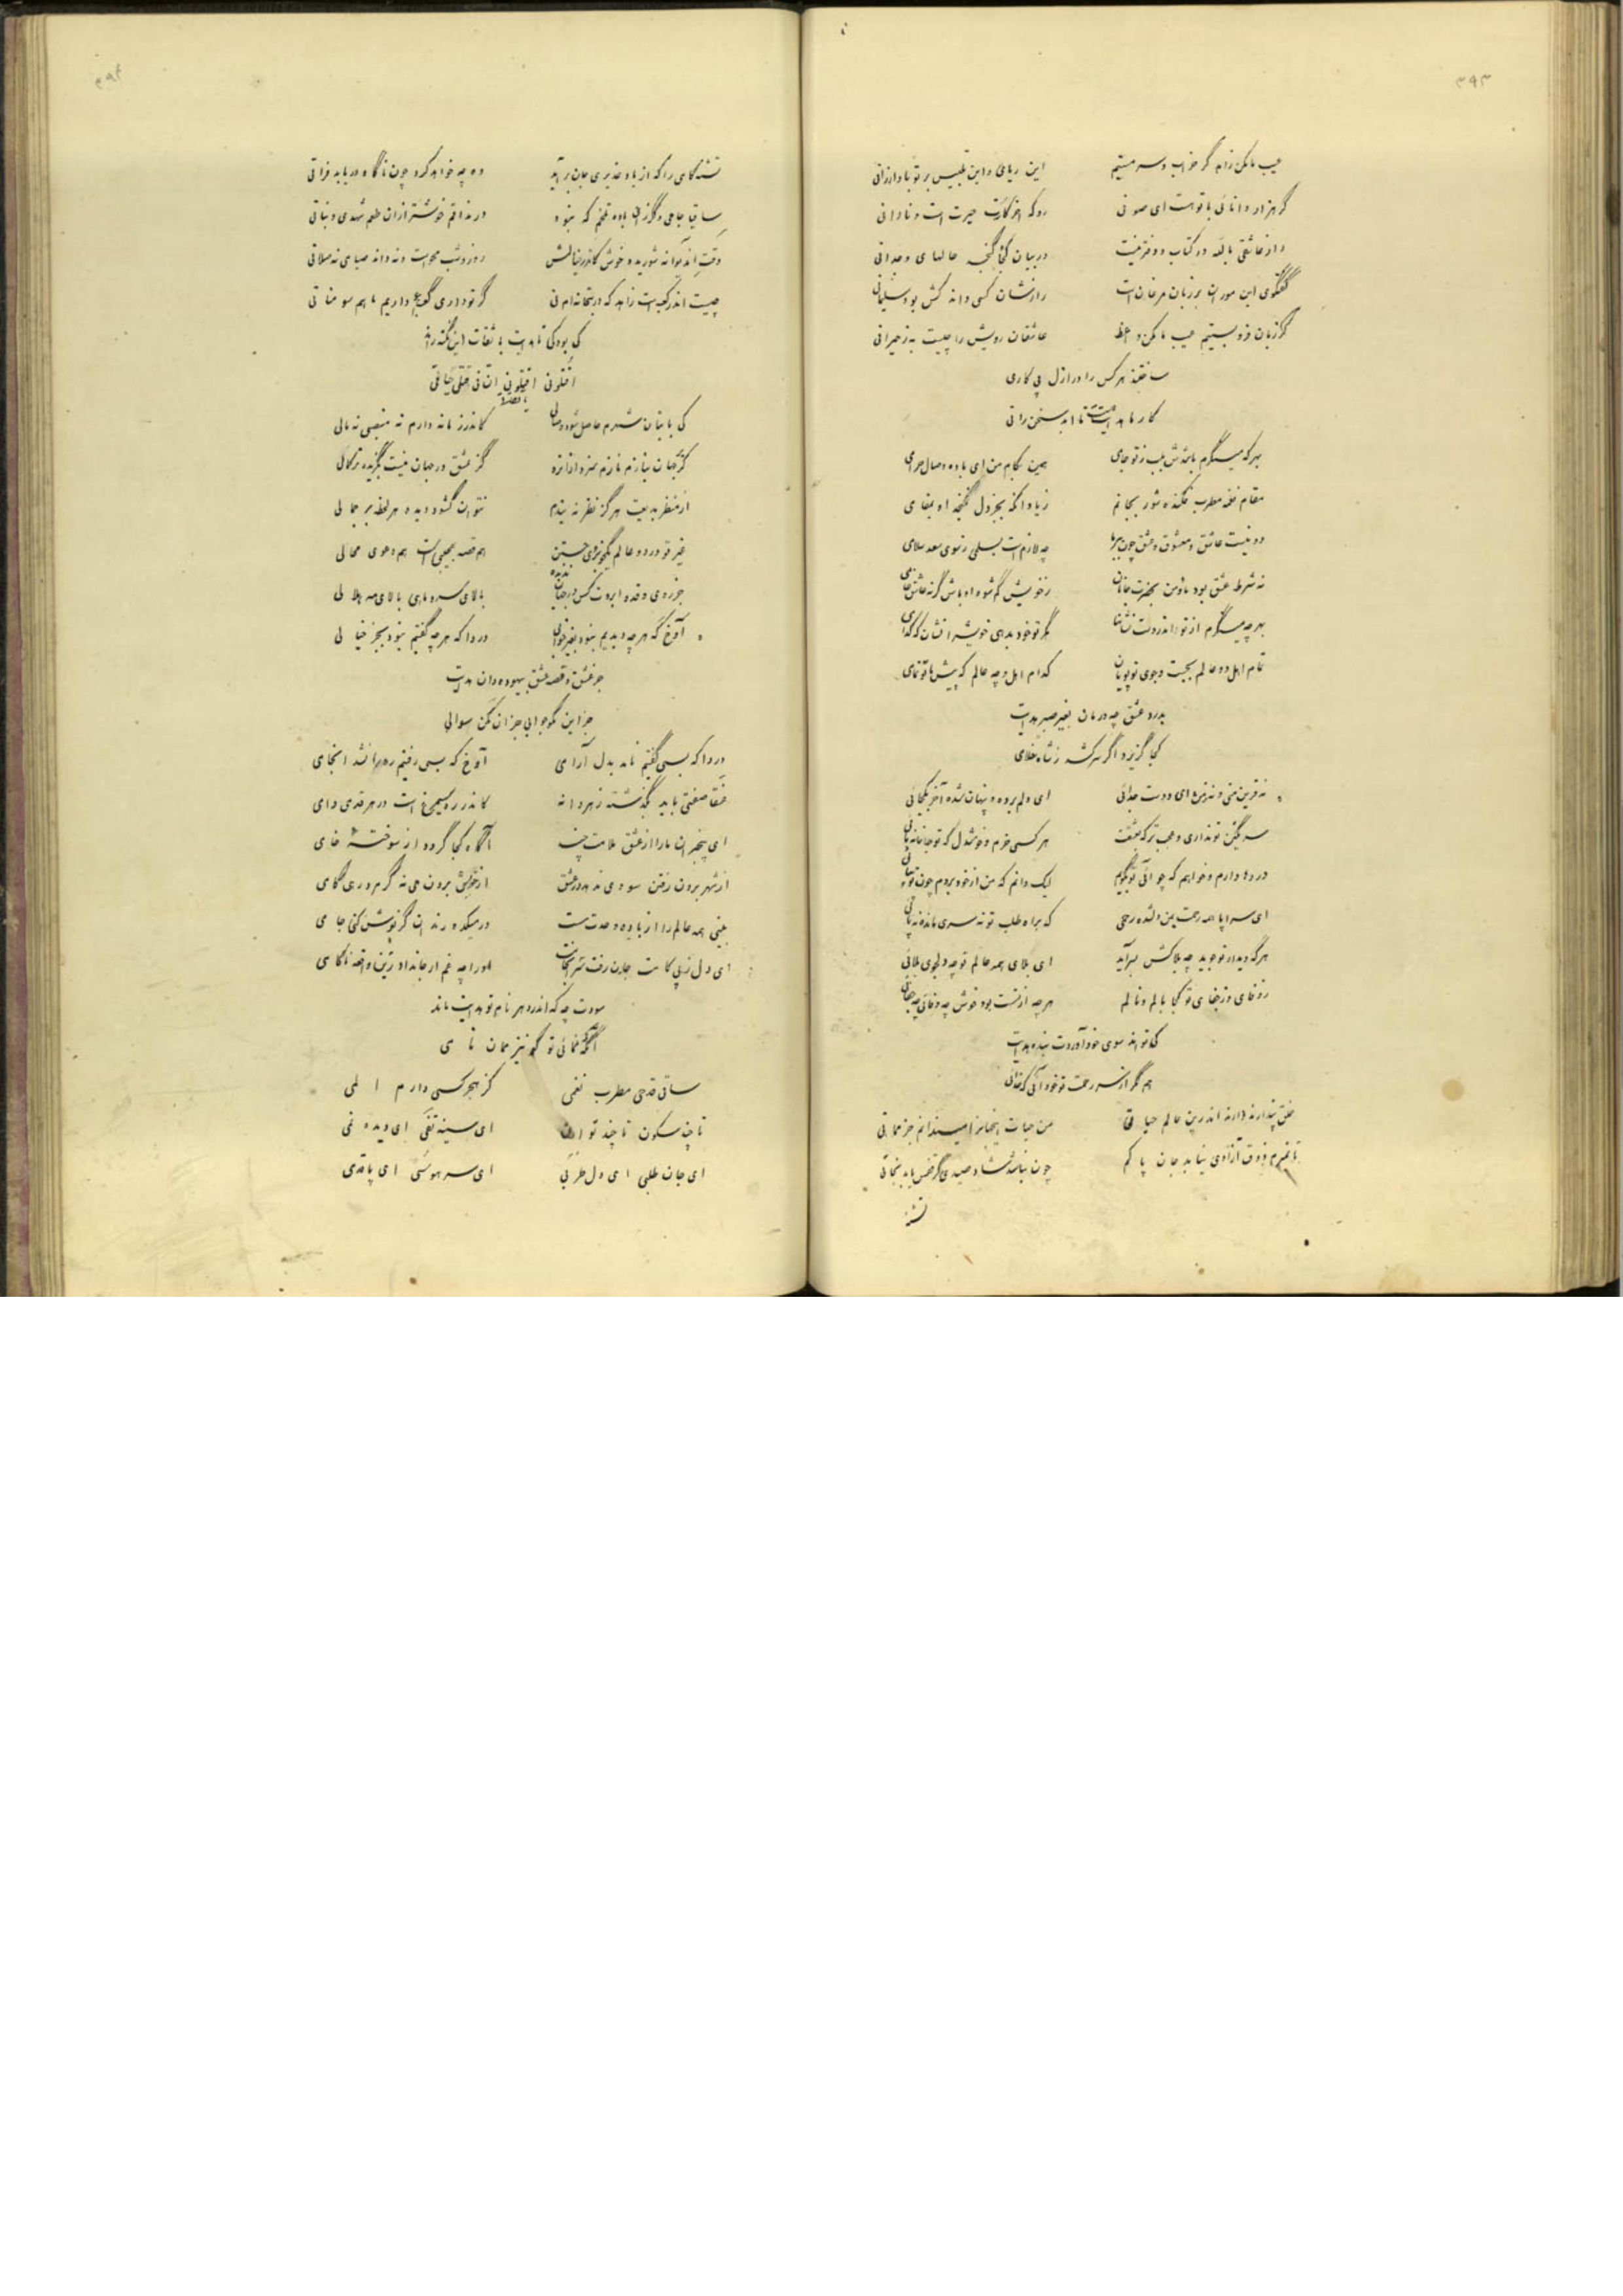 ۳۹۳
عیب ما مکن زاهد گر خراب و سرمستیم این ریائی و این تلبیس بر تو باد ارزانی
گر هزار دانائی با تو هست ای صوفی رو که آخر کارت حیرت است و نادانی
راز عاشقی بالله در کتاب و دفتر نیست در بیان کجا گنجد حالهای وجدانی
گفتگوی این موران بر زبان مرغان است رازشان کسی داند کش بود سلیمانی
گر زبان فرو بستیم عیب ما مکن واعظ عاشقان رویش را چیست به ز حیرانی
ساختند هر کس را در ازل پی کاری
کار ما هدایت تا ابد سخن رانی
بهر که مینگرم باشدش بلب ز تو جامی همین بکام من ای باده وصال حرامی
مقام نغمه مطرب فکنده شور بجانم زیاد آنکه بجز دل نگنجد او بمقامی
دو نیست عاشق و معشوق و عشق چون چه لازم است بسلمی ز سوی سعد سلامی
نه شرط عشق بود ما و من بحضرت جانان ز خویش گم شو و او باش گر نه عاشق خامی
بهر چه مینگرم از تو اندروست نشانها مگر تو خود بدهی خویش را نشان که کدامی
تمام اهل دو عالم بجست و جوی تو پویان کدام اهل و چه عالم که پیش ما تو تمامی
بدرد عشق چه درمان بغیر صبر هدایت
کجا گریزد اگر سر کشد ز شاه غلامی
نه قرین منی و نه ز من ای دوست جدائی ای دلم برده و پنهان شده آخر بکجائی
سر مگین تو نداری و عجب تر که بعشقت هر کسی خرم و خوشدل که تو جانانه مائی
دردها دارم و خواهم که چو آئی تو بگویم لیک دانم که من از خود بروم چون تو بیائی
ای سراپا همه رحمت بمن دلشده رحمی که براه طلب تو نه سری مانده نه پائی
هر که دیدار تو جوید چه بلا کش بسر آید ای بلای همه عالم تو چه دلجوی بلائی
ز وفای و ز جفای تو کجا بالم و نالم هر چه از تست بود خوش چه وفائی چه جفائی
که تواند سوی خود آوردت بنده هدایت
هم مگر از سر رحمت تو خود آئی که خدائی
خلق پندارند دارند اندرین عالم حیاتی من حیات اینجهانرا میندانم جز مماتی
تا نمیرم ذوق آزادی نیابد جان پاکم چون نباشد شاد صیدی گر قفس یابد نجاتی
تشنه
۳۹۴
تشنه کامی را که از یاد غدیری جان بر آید وه چه خواهد کرد چون ناگاه دریابد فراتی
ساقیا جامی دگر زان باده تلخم که نبود در مذاقم خوشتر از آن طعم شهدی و نباتی
وقت آن دیوانه شوریده خوش کاندر خیالش روز و شب محو است و نه داند صباحی نه صلاتی
چیست اندر کعبه‌ات زاهد که در بتخانه‌ام نی گر تو داری کعبه داریم ما هم سومناتی
کی بود کی تا هدایت با ثقات این نکته راند
اقتلونی اقتلونی یا ثقات ان فی قتلی حیاتی
کی با بتان شهرم حاصل شود وصالی کاندر زمانه دارم نه منصبی نه مالی
گر بجهان بنازم نازم سزد ازیرا کز عشق در جهان نیست بگزیده تر کمالی
از منظر بدیعت هرگز نظر نه بندم نتوان گشود دیده هر لحظه بر جمالی
غیر تو در دو عالم یکچیزی جستن هم قصه عجیبی است هم دعوی محالی
جز روی و قد و ابروت کس در جهان ندیده بالای سرو ماهی بالای مه هلالی
آوخ که هر چه دیدیم نبود بغیر خوابی دردا که هر چه گفتیم نبود بجز خیالی
جز عشق و قصه عشق بیهوده دان هدایت
جز این مگو جوابی جز آن مکن سوالی
دردا که بسی گفتیم نامد بدل آرامی آوخ که بسی رفتیم ره را نشد انجامی
عنقا صفتی باید بگذشته ز هر دانه کاندر ره سیمرغ است در هر قدمی دامی
ای بیخبران ما را از عشق ملامت چند آگاه کجا گردد از سوخته خامی
از شهر برون رفتن سودی ندهد در عشق از خویش برون می نه گر مرد رهی گامی
بینی همه عالم را از باده وحدت مست در میکده رندان گر نوش کنی جامی
ای دل ز پی کامت جان رفت او را چه غم ار جانداد زین واقعه ناکامی
سودت چه که اندر دهر نام تو هدایت ماند
آنگه که نمانی تو گو نیز ممان نامی
ساقی قدحی مطرب نغمی کز هجر کسی دارم المی
تا چند سکون تا چند توان ای سینه تفی ای دیده نمی
ای جان طلبی ای دل طربی ای سر هوسی ای پا قدمی